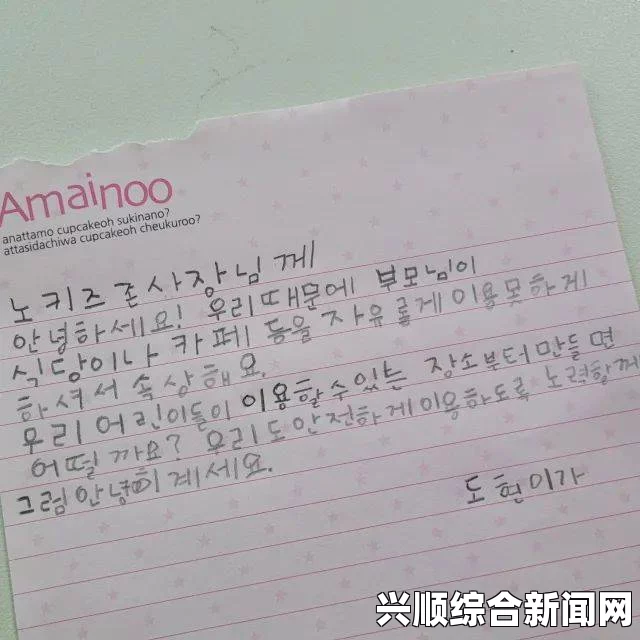 Amainoo
anattamo cupcakeoh sukinano?
attasidachiwa cupcakeoh cheukuroo?
노키즈존사장님께
안녕하세요! 우리때문에 부모님이
식당이나 카페 등을 자유롭게이용못하게
하셔서 속상해요.
우리어린이들이 이용할수있는 장소부터만들면
어떨까요? 우리도안전하게이용하도록 노력할께
그럼안녕히계세요.
도현이가
兴顺综合新闻网